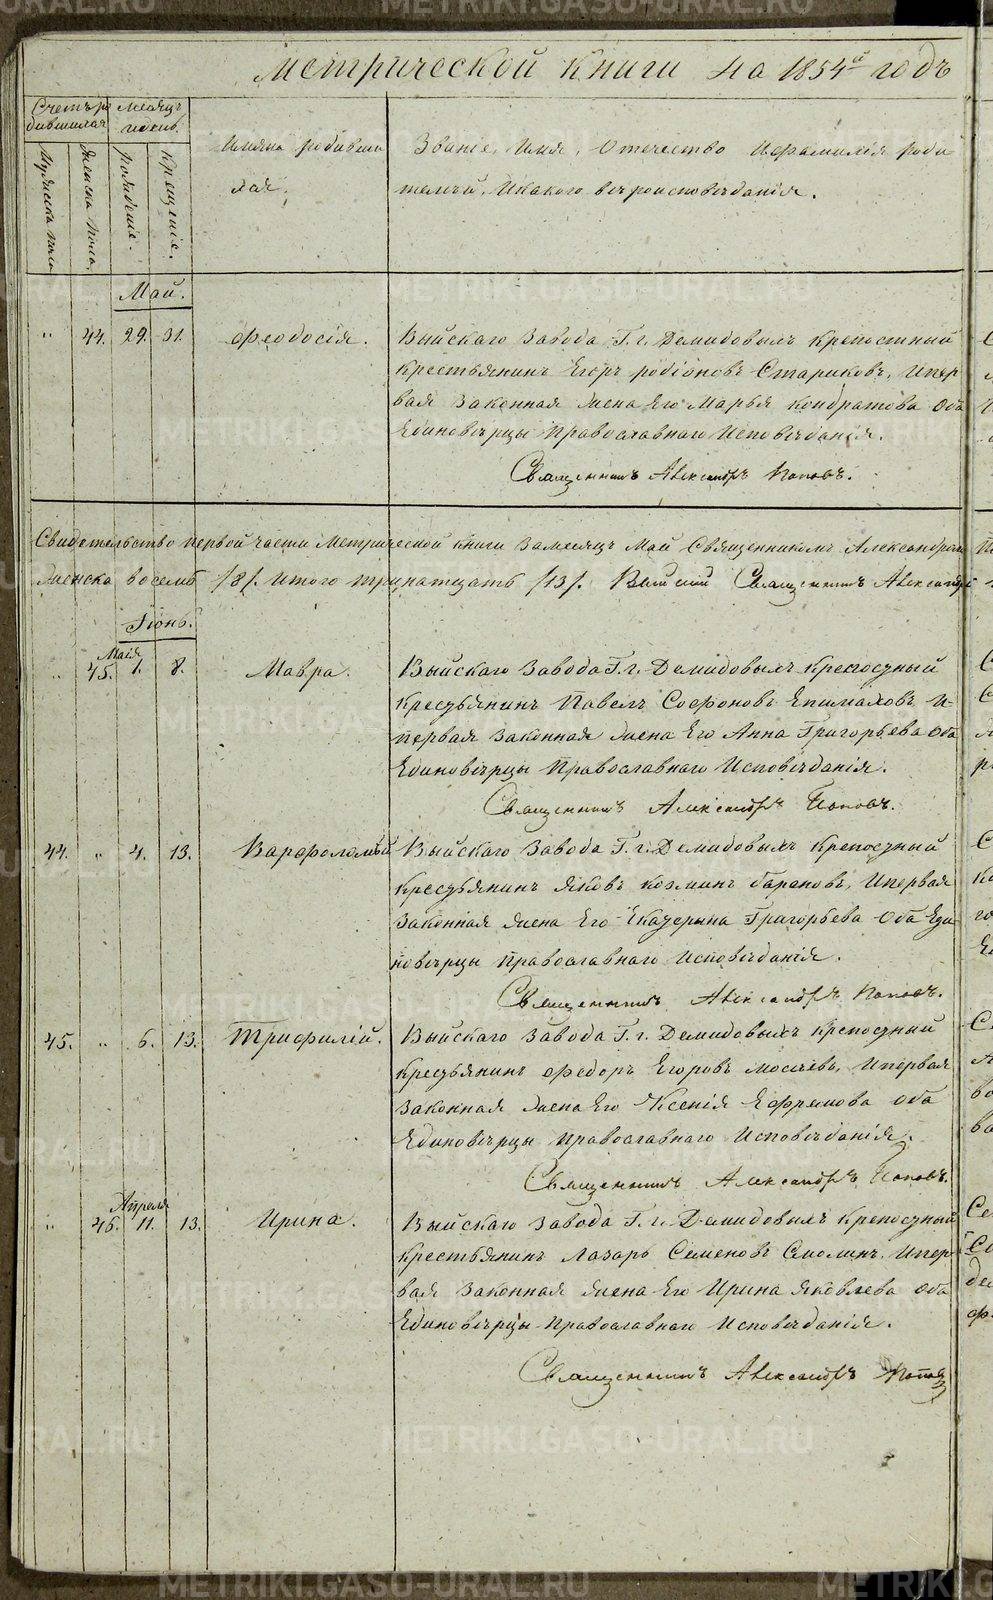 Метрической книги на 1854й годъ
Счетъ ро
дившихся
Месяцъ
и день.
Мужеска пола
Женска пола,
рожденіе.
Крещеніе.
Имяна родивши
хся.
Званіе, Имя, Отечество Ифамилія роди
телей, Икакого вѣроисповѣданія.
Май.
" 44. 29. 31. Феодосія. Выйскаго Завода Г. г. Демидовыхъ крепостный
крестьянинъ Егоръ родіоновъ Стариковъ, Ипер
вая Законная жена Его Марья кондратова Оба
Единовѣрцы Православнаго Исповѣданія.
Священникъ Александръ Поповъ.
Свидетельство первой части Метрической книги Замесяцъ Май Священникомъ Александромъ
женска восемь /8/. итого тринатцать /13/. Священникъ Александръ
Іюнь.
Маія
" 45. 1. 8. Мавра. Выйскаго Завода Г. г. Демидовыхъ Крепостный
Крестьянинъ Павелъ Софоновъ Епимаховъ И-
первая Законная жена Его Анна Григорьева Оба
Единовѣрцы Православнаго Исповѣданія.
Священникъ Александръ Поповъ.
44. " 4. 13. Варфоломѣй Выйскаго Завода Г. г. Демидовыхъ Крепостный
Крестьянинъ Яковъ козминъ барановъ, Ипервая
Законная жена Его Екатерина Григорьева Оба Еди
новѣрцы православнаго исповѣданія.
Священникъ Александръ Поповъ.
45. " 6. 13. Трифилій. Выйскаго Завода Г. г. Демидовыхъ крепостный
Крестьянинъ Федоръ Егоровъ мосѣевъ, Ипервая
Законная жена Его Ксенія Ефремова Оба
Единовѣрцы православнаго Исповѣданія.
Священникъ Александръ Поповъ.
Апреля
" 46. 11. 13. Ирина. Выйскаго Завода Г. г. Демидовыхъ Крепостный
крестьянинъ Лазарь Семеновъ Смолинъ, Ипер
вая Законная жена Его Ирина Яковлева Оба
Единовѣрцы Православнаго Исповѣданія.
Священникъ Александръ Поповъ
METRIKI.GASO-URAL.RU